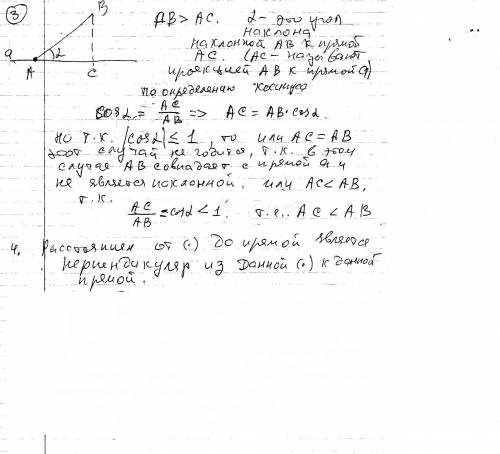 ③
B
a
2
A
C
AB > AC. α - это угол
наклона
наклонной AB к прямой
AC. (AC - называют
проекцией AB к прямой a)
по определению косинуса
cos α = AC/AB => AC = AB·cos α.
Но т.к. |cos α| ≤ 1, то или AC = AB
этот случай не годится, т.к. в этом
случае AB совпадает с прямой a и
не является наклонной. или AC < AB,
т.к.
AC/AB = cos α < 1. т.е. AC < AB
4. Расстоянием от (·) до прямой является
перпендикуляр из данной (·) к данной
прямой.